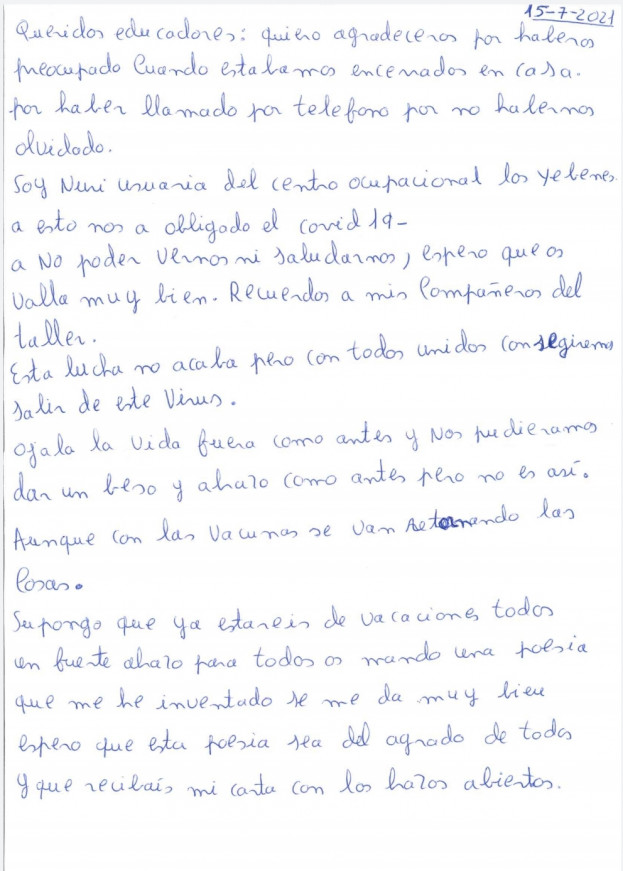 15-7-2021
Queridos educadores: quiero agradeceros por haberos
preocupado Cuando estabamos encerrados en casa.
por haber llamado por telefono por no habernos
olvidado.
Soy Nuri usuaria del centro ocupacional los yebenes.
a esto nos a obligado el covid 19-
a No poder vernos ni saludarnos, espero que os
valla muy bien. Recuerdos a mis Compañeros del
taller.
Esta lucha no acaba pero con todos unidos consegiremos
salir de este Virus.
ojala la vida fuera como antes y Nos pudieramos
dar un beso y abrazo como antes pero no es así.
Aunque con las Vacunas se van retornando las
Cosas.
Supongo que ya estareis de vacaciones todos
un fuerte abrazo para todos os mando una poesia
que me he inventado se me da muy bien
espero que esta poesia sea del agrado de todos
y que recibaís mi carta con los brazos abiertos.